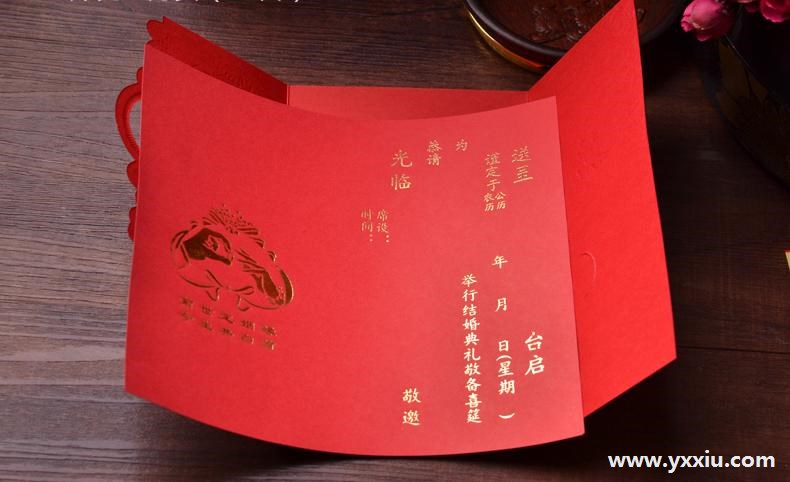 送呈
台启
谨定于公历
农历
年 月 日(星期 )
为
举行结婚典礼敬备喜筵
恭请
光临
敬邀
席设：
时间：
www.yxxiu.com